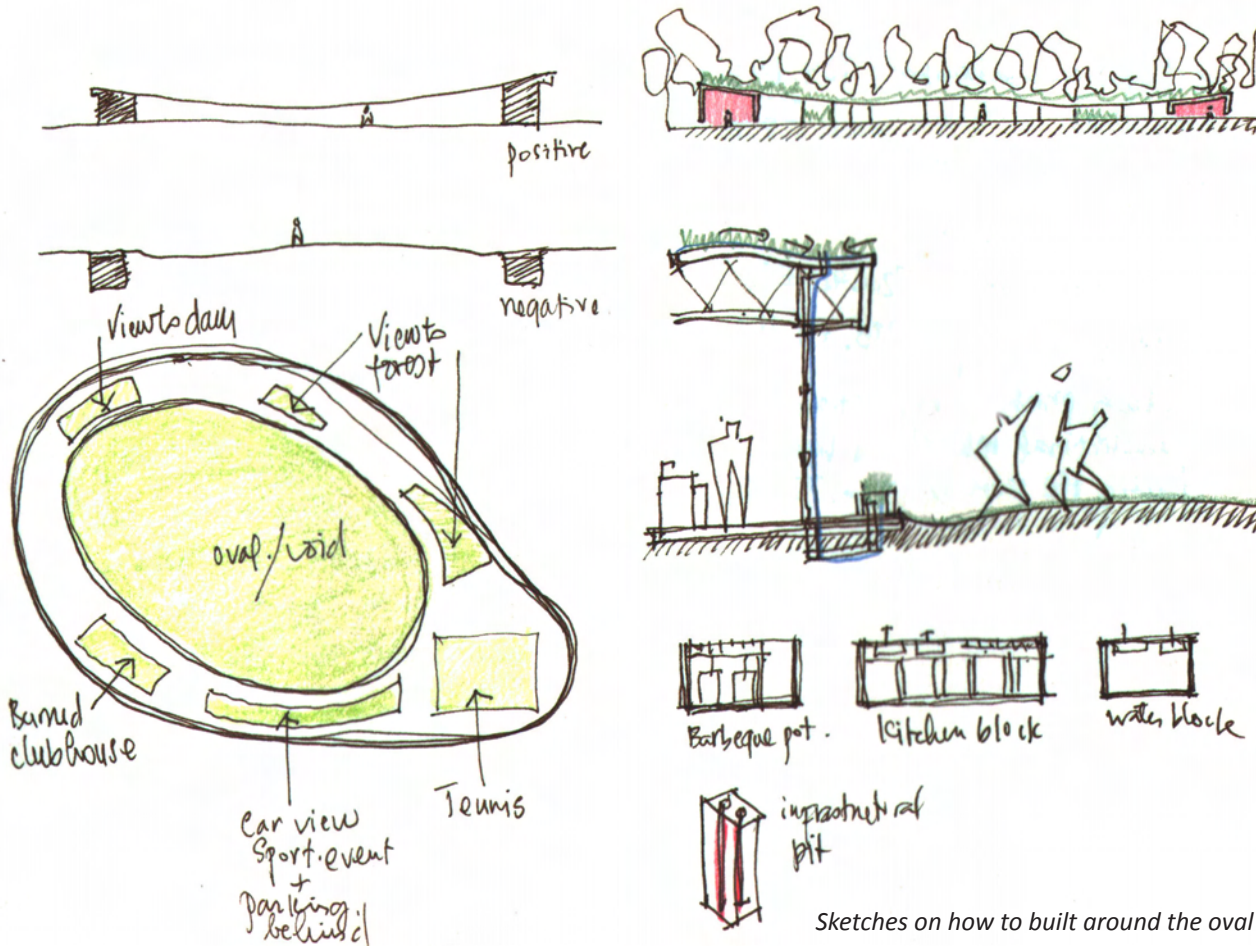 positive
negative
View to dam
View to
forest
oval/void
Burned
clubhouse
Tennis
Car view
Sport.event
+
parking
behind
Barbeque pot.
Kitchen block
water block
infrastructural
pit
Sketches on how to built around the oval